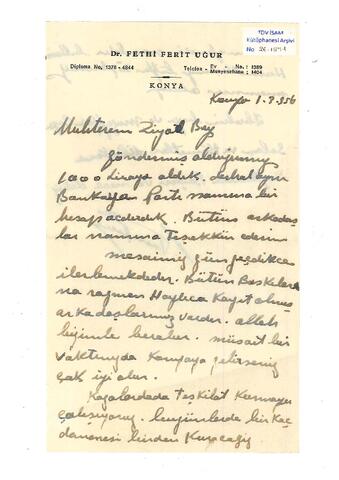 TDV İSAM
Kütüphanesi Arşivi
No
Dr. FETHİ FERİT UĞUR
Diploma No. 1378 - 4844
Telefon - Ev No.: 1389
Muayenehane: 1404
KONYA
Konya 1.9.956
Muhterem Ziyad Bey
göndermiş olduğunuz
1000 Lirayı aldık. derhal aynı
Bankaya Parti namına bir
hesap açdırdık. Bütün arkadaş
lar namına Teşekkür ederim
mesaimiz gün geçdikce
ilerlemekdedir. Bütün Baskılara
na rağmen Haylice Kayıt olmuş
arkadaşlarımız vardır. allah
bizimle beraber. müsait bir
vaktınızda Konyaya gelirseniz
çok iyi olur.
Kazalardada Teşkilat Kurmaya
çalışıyoruz. bugünlerde bir Kaç
danesini birden Kuracağız